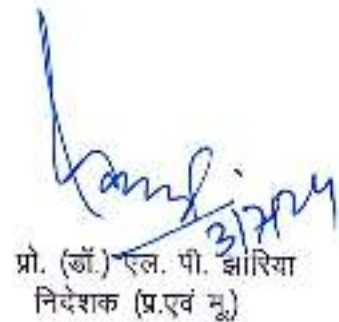 3/7/24
प्रो. (डॉ.) एल. पी. झारिया
निदेशक (प्र.एवं मू.)